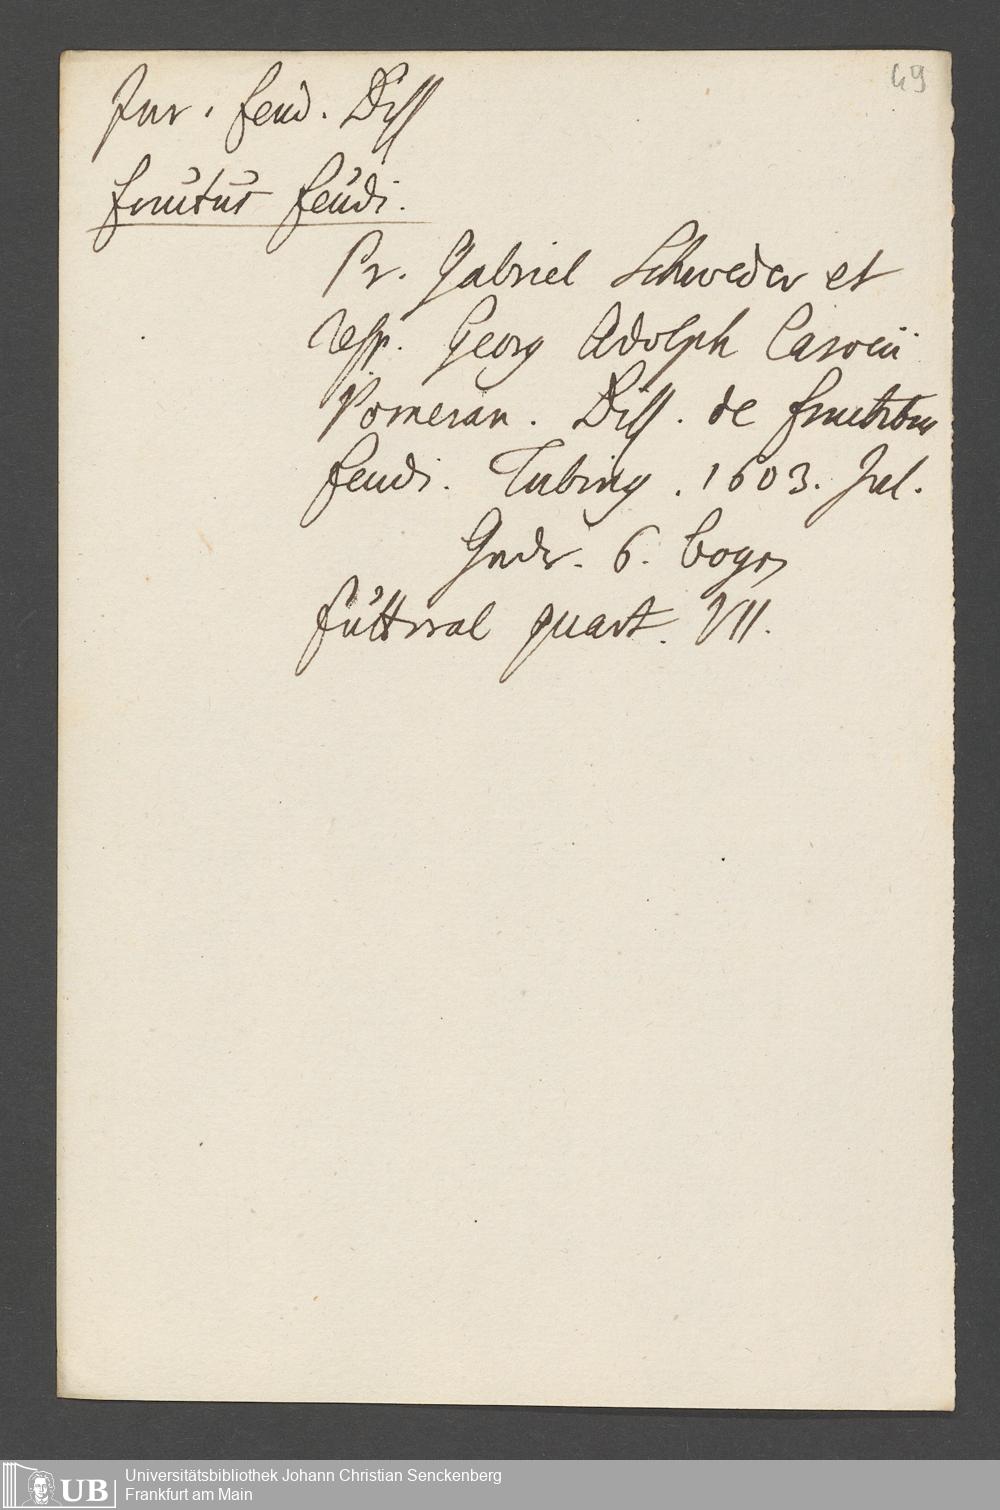 49
Jur. feud. Diss
fructus feudi.
Pr. Gabriel Schweder et
resp. Georg Adolph Carocii
Pomeran. Diss. de fructibus
feudi. Tubing. 1603. Jul.
6. bogen
futteral quart. VII.
Universitätsbibliothek Johann Christian Senckenberg
Frankfurt am Main
UB